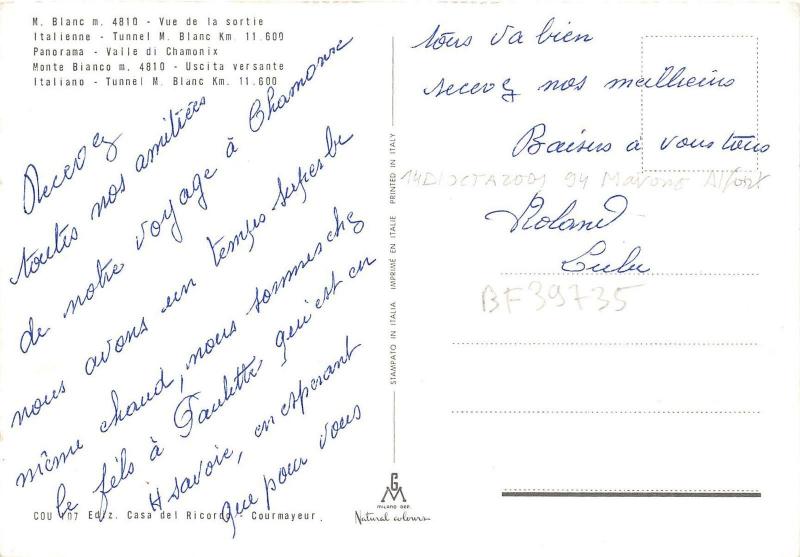 M. Blanc m. 4810 - Vue de la sortie
Italienne - Tunnel M. Blanc Km. 11.600
Panorama - Valle di Chamonix
Monte Bianco m. 4810 - Uscita versante
Italiano - Tunnel M. Blanc Km. 11.600
Recevez
toutes nos amitiées
de notre voyage à Chamonix
nous avons un temps superbe
même chaud, nous sommes chez
le fils à Paulette qui est en
H Savoie, en esperant
que pour vous
COU 107 Ediz. Casa del Ricordo - Courmayeur
STAMPATO IN ITALIA IMPRIMÉ EN ITALIE PRINTED IN ITALY
GM
MILANO DEP.
Natural colours
tous va bien
recevez nos meilleurs
Baisers a vous tous
94 Alfort
Roland
Lulu
BF39735